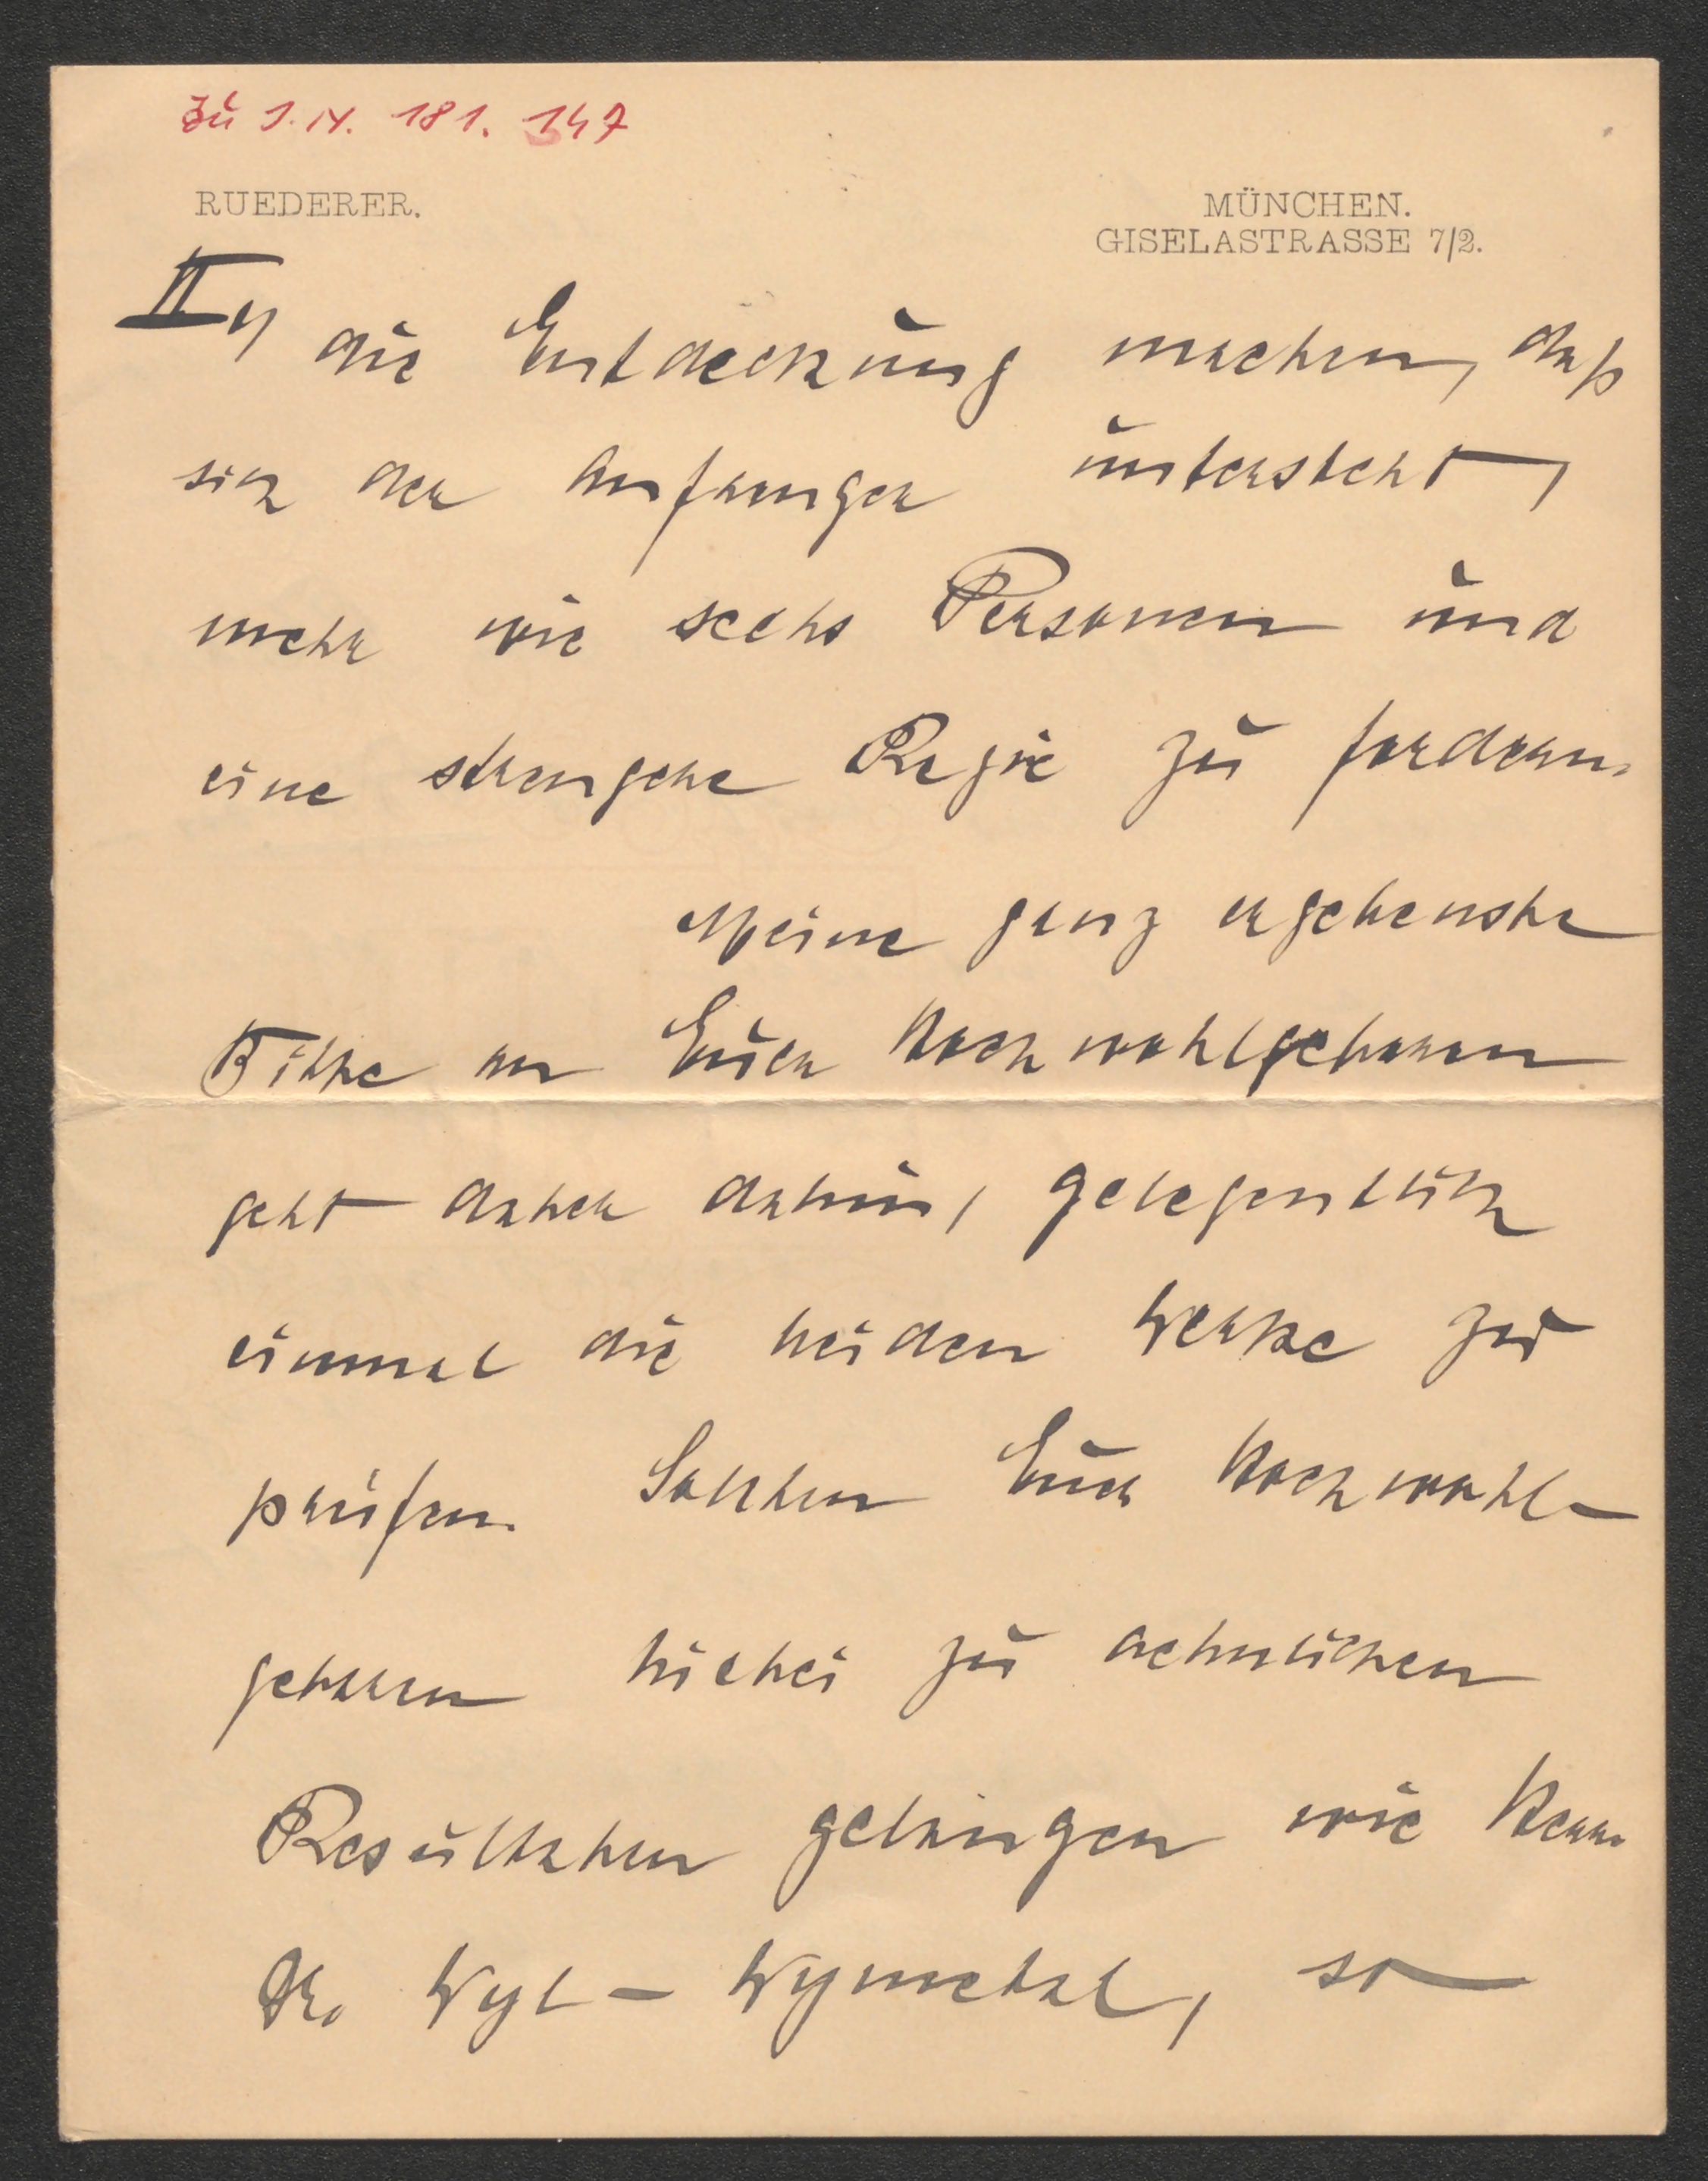 Zu I.N. 181.347
RUEDERER.
MÜNCHEN.
GISELASTRASSE 7/2.
II, die Entdeckung machen, daß
sich der Anfänger untersteht,
mehr wie sechs Personen und
eine strengere Regie zu fordern.
Meine ganz ergebenste
Bitte an Euer Hochwohlgeboren
geht daher dahin, gelegentlich
einmal die beiden Werke zu
prüfen. Sollten Euer Hochwohl-
geboren hiebei zu aehnlichen
Resultaten gelangen wie Herr
Dr. Wyl-Wymetal, so